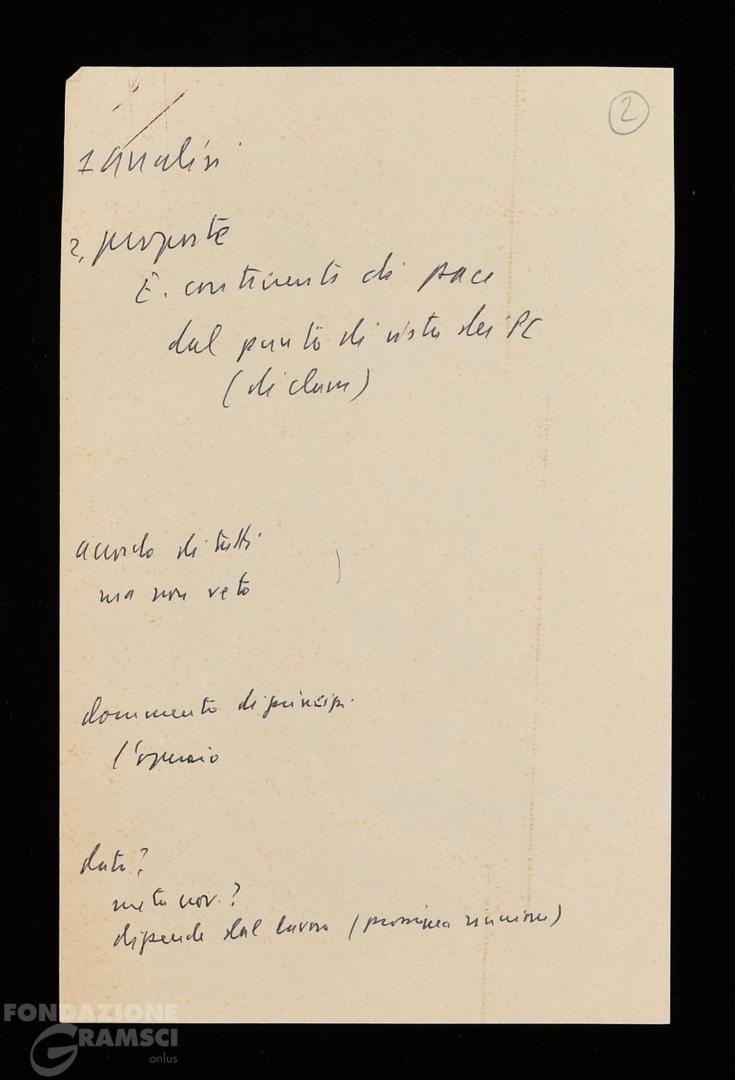 2
1 analisi
2, proposte
E. continente di pace
dal punto di vista dei PC
(di classe)
accordo di tutti
ma non veto
documento di principi
l'operaio
data?
metà nov.?
dipende dal lavoro (prossima riunione)
FONDAZIONE
GRAMSCI
onlus